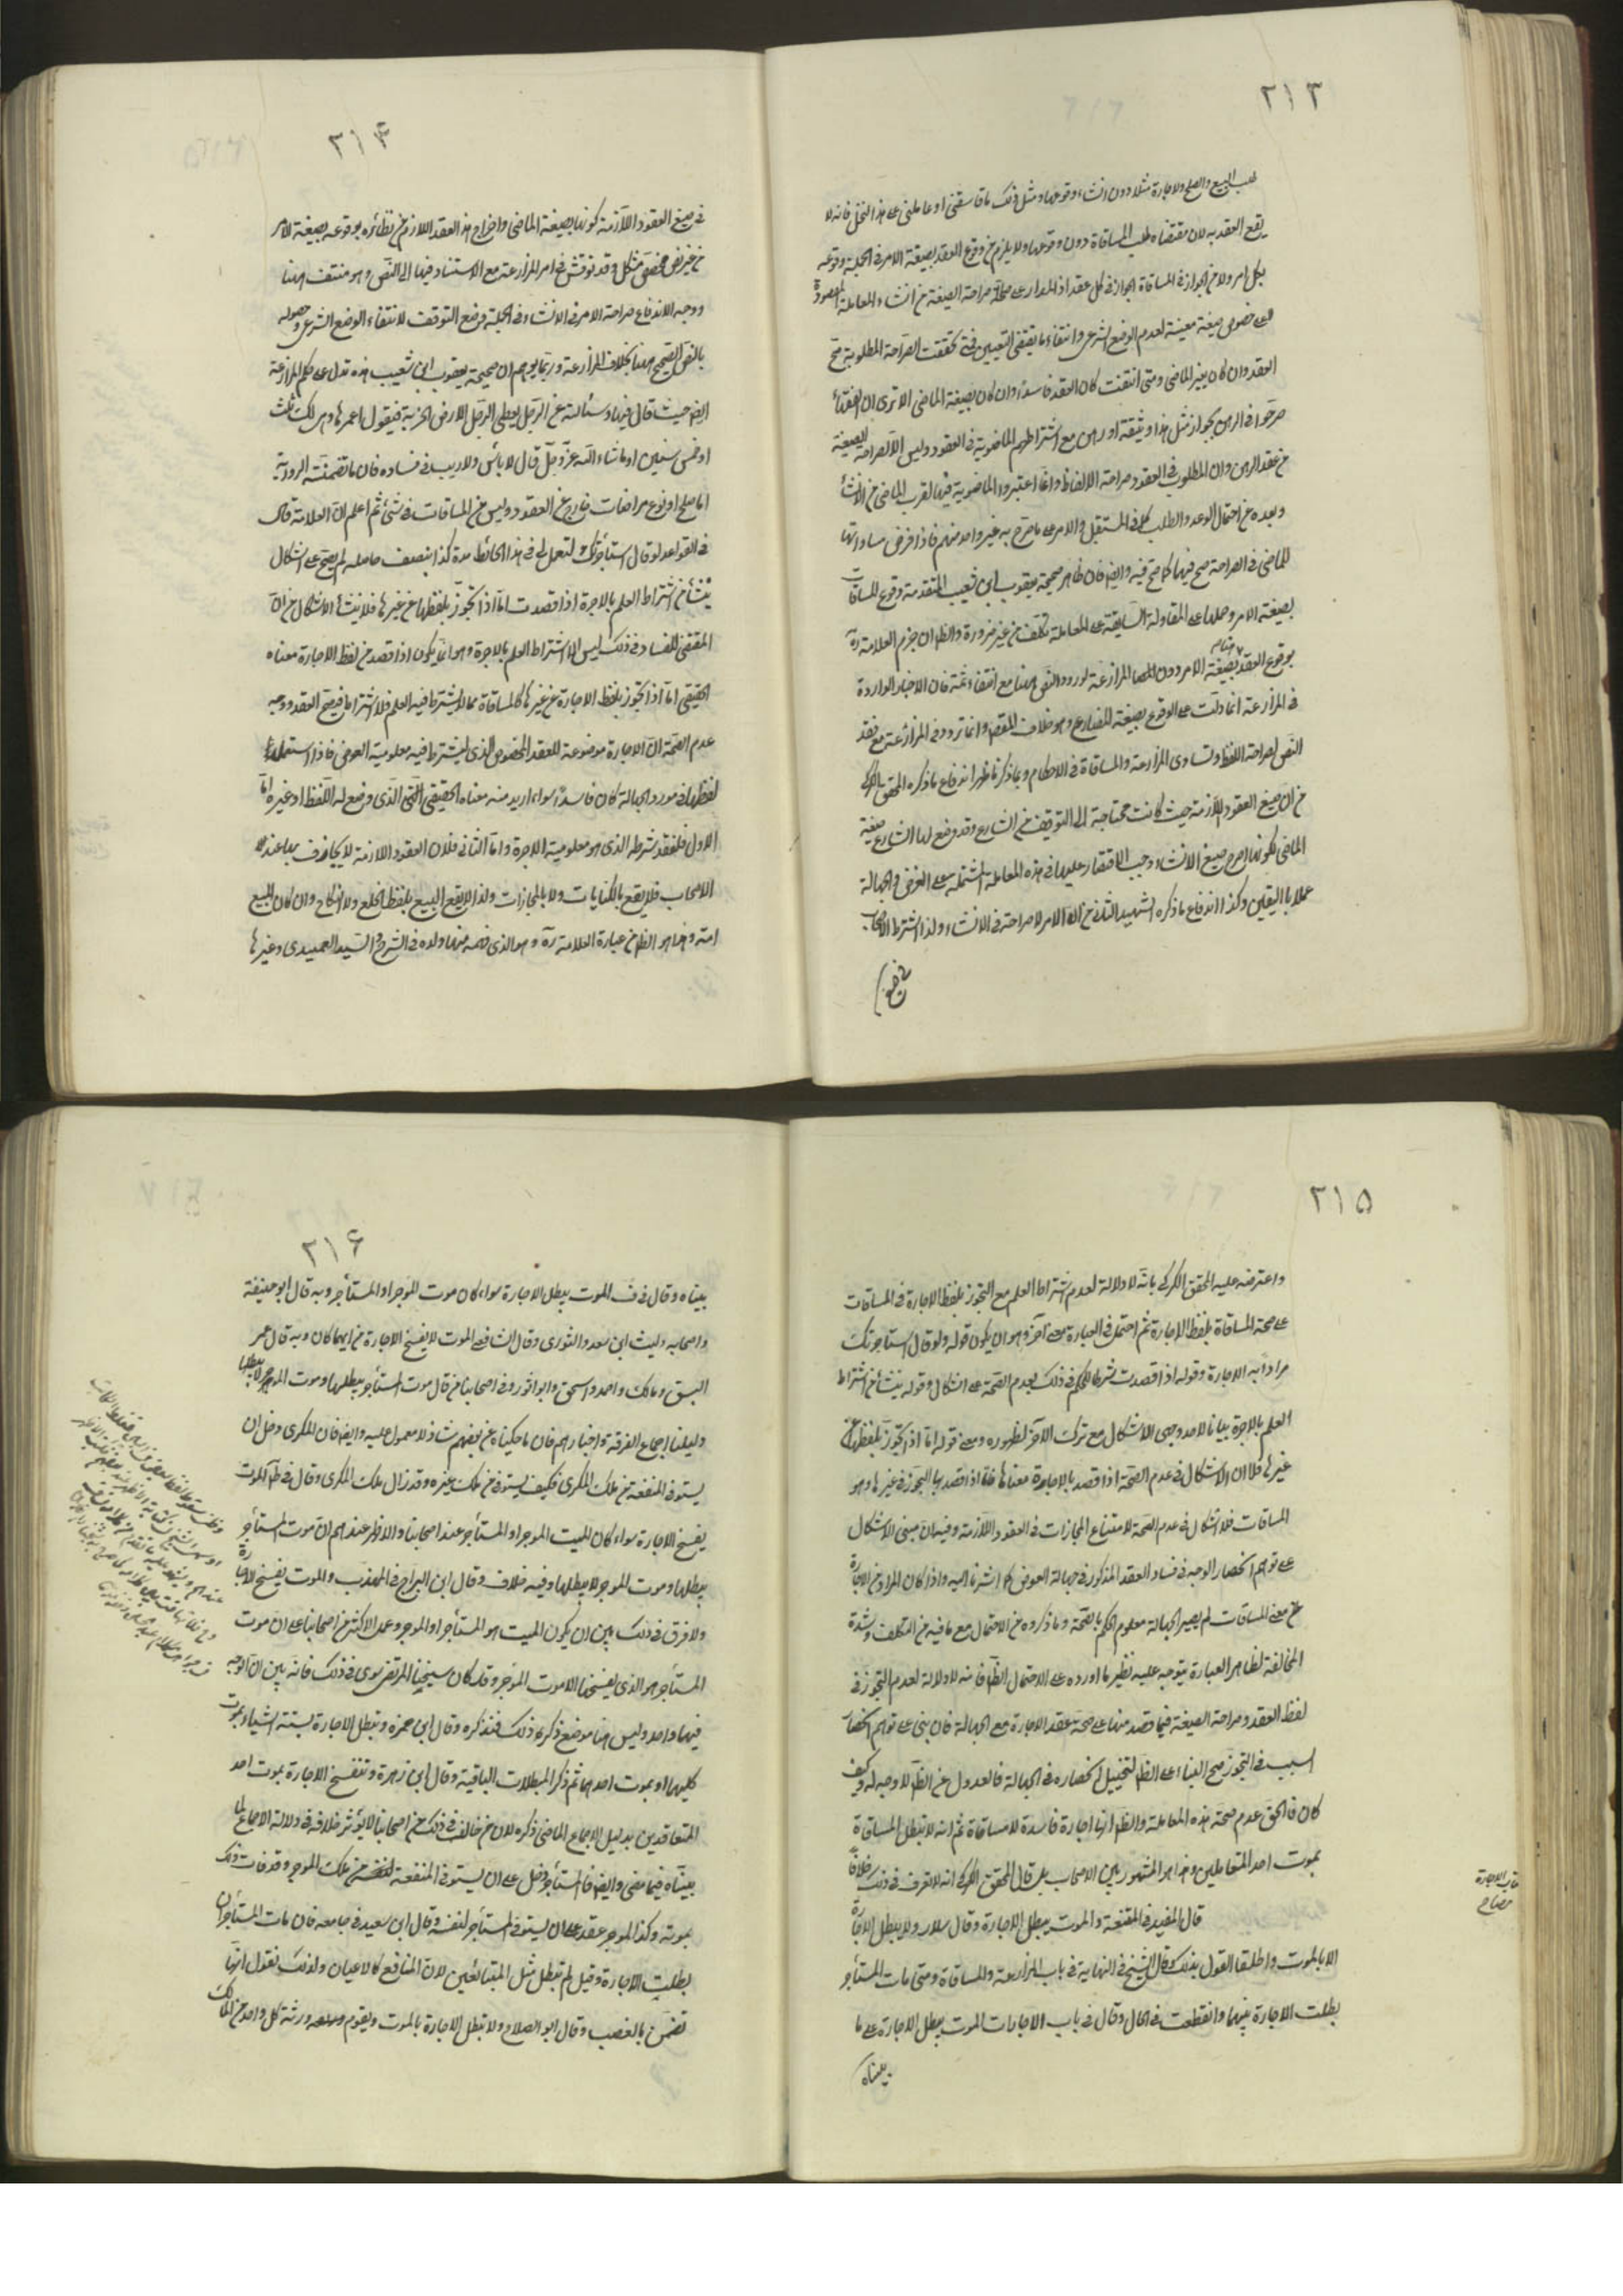 ٢١٣
طلب البيع والصلح والاجارة مثلا دون انشاء وقوعها ومثل ذلك ما قاسقنى او عاملنى على هذا النخل فانه لا
يقع العقد به لان مقتضاه طلب المساقاة دون وقوعها ولا يلزم من وقوع العقد بصيغة الامر فى الجملة وقوعه
بكل امر ولا من الجواز فى المساقاة الجواز فى كل عقد اذ المدار على صراحة الصيغة من انشاء المعاملة المقصودة
على خصوص صيغة معينة لعدم الوضع الشرعى وانتفاء ما يقتضى التعيين فمتى تحققت الصراحة المطلوبة صح
العقد وان كان بغير الماضى ومتى انتفت كان العقد فاسدا وان كان بصيغة الماضى الا ترى ان الفقهاء
صرحوا فى الرهن بجواز مثل هذا وثيقة او رهن مع اشتراطهم الماضوية فى العقود وليس الا لصراحة الصيغة
من عقد الرهن وان المطلوب فى العقود صراحة الالفاظ وانما اعتبروا الماضوية فيها لقرب الماضى من الانشاء
وبعده عن احتمال الوعد والطلب كما فى المستقبل والامر على ما صرح به غير واحد منهم فاذا فرض مساواتها
للماضى فى الصراحة صح فيها كما صح فيه وايضا فان ظاهر صحيحة يعقوب ابن شعيب المتقدمة وقوع المساقات
بصيغة الامر وحملها على المقاولة السابقة على المعاملة تكلف من غير ضرورة والظ ان جزم العلامة ره
بوقوع العقد بصيغة الامر دون المزارعة لورود النص هنا مع انتفاء ثمة فان الاخبار الواردة
فى المزارعة انما دلت على الوقوع بصيغة المضارع وهو خلاف وانما تردد فى المزارعة مع فقد
النص لصراحة اللفظ وتساوى المزارعة والمساقاة فى الاحكام وبما ذكرنا ظهر اندفاع ما ذكره المحقق الكركى
من ان صيغ العقود اللازمة حيث كانت محتاجة الى التوقيف من الشارع وقد وضع لها الشارع صيغة
الماضى لكونها اصرح صيغ الانشاء وجب الاقتصار عليها فى هذه المعاملة المشتملة على الغرض والجهالة
عملا باليقين وكذا اندفاع ما ذكره الشهيد الثانى من ان الامر لا صراحة فى الانشاء ولذا اشترط الاصحاب
٢١٤
فى صيغ العقود اللازمة كونها بصيغة الماضى واخراج هذا العقد اللازم من نظائره بوقوعه بصيغة الامر
من غير نص مخصص مشكل وقد نوقش فى امر المزارعة مع الاستناد فيها الى النص وهو منتف هنا
ووجه الاندفاع صراحة الامر فى الانشاء فى الجملة مع التوقف لانتفاء الوضع الشرعى وحصوله
بالنص الصحيح هنا بخلاف المزارعة وربما يوهم ان صحيحة يعقوب ابن شعيب هذه تدل على حكم المزارعة
ايضا حيث قال فيها وسئالته عن الرجل يعطى الرجل الارض الخربة فيقول اعمرها وهى لك ثلث
او خمس سنين او ما شاء الله عز وجل قال لا بأس ولا ريب فى فساده فان ما تضمنته الرواية
اما صلح او نوع مراضات خارج عن العقود وليس من المساقات فى شئ ثم اعلم ان العلامة قال
فى القواعد لو قال استأجرتك لتعمل لى فى هذا الحائط مدة كذا بنصف حاصله لم يصح على اشكال
ينشأ من اشتراط العلم بالاجرة اذا قصدت اما اذا تجوز بلفظها عن غيرها فلا ينشأ الاشكال من ان
المقتضى للفساد فى ذلك ليس الا اشتراط العلم بالاجرة وهو انما يكون اذا قصد من لفظ الاجارة معناه
الحقيقى اما اذا تجوز بلفظ الاجارة عن غيرها كالمساقاة مما لا يشترط فيه العلم فلا اشتراط فيصح العقد ووجه
عدم الصحة ان الاجارة موضوعة للعقد المخصوص الذى يشترط فيه معلومية العوض فاذا استعمل
لفظها فى مورد الجهالة كان فاسدا سواء اريد منه معناه الحقيقى الذى وضع له اللفظ او غيره اما
الاول فلفقد شرطه الذى هو معلومية الاجرة واما الثانى فلان العقود اللازمة لا يجازف بها عند
الاصحاب فلا يقع بالكنايات ولا بالمجازات ولذا لا يقع البيع بلفظ الخلع ولا النكاح وان كان المبيع
امة وهذا هو الظ من عبارة العلامة ره وهو الذى فهمه منها ولده فى الشرح والسيد العميدى وغيرها
٢١٥
واعترضه عليه المحقق الكركى بانه لا دلالة لعدم اشتراط العلم مع التجوز بلفظ الاجارة فى المساقات
على صحة المساقاة بلفظ الاجارة ثم احتمل فى العبارة معنى آخر وهو ان يكون قوله ولو قال استاجرتك
مرادا به الاجارة وقوله اذا قصدت شرطا للحكم فى ذلك بعدم الصحة على اشكال وقوله ينشأ من اشتراط
العلم بالاجرة بيانا لاحد وجهى الاشكال مع ترك الآخر لظهوره ومعنى قوله اما اذا تجوز بلفظها عن
غيرها فلا ان الاشكال فى عدم الصحة اذا قصد بالاجارة معناها فاما اذا قصد بها التجوز فى غيرها وهو
المساقات فلا اشكال فى عدم الصحة لامتناع المجازات فى العقود اللازمة وفيه ان مبنى الاشكال
على توهم انحصار الوجه فى فساد العقد المذكور فى جهالة العوض كما اشرنا اليه واذا كان المراد من الاجارة
معنى المساقات لم يصير الجهالة معلوم الحكم بالصحة وما ذكروه من الاحتمال مع ما فيه من التكلف وشدة
المخالفة لظاهر العبارة يتوجه عليه نظير ما اورده على الاحتمال الظ فانه لا دلالة لعدم التجوز فى
لفظ العقد وصراحة الصيغة فيما قصد منها على صحة عقد الاجارة مع الجهالة فان بنى على توهم انحصار
السبب فى التجوز صح البناء على الظ لتخييل انحصاره فى الجهالة فالعدول عن الظ لا وجه له وكيف
كان فالحق عدم صحة هذه المعاملة والظ انها اجارة فاسدة لا مساقاة ثم انه لا تبطل المساقاة
بموت احد المتعاملين وهذا هو المشهور بين الاصحاب بل قال المحقق الكركى انه لا تعرف فى ذلك خلافا
قال المفيد فى المقنعة والموت يبطل الاجارة وقال سلار ولا يبطل الاجارة
الا بالموت واطلقا القول بذلك وقال الشيخ فى النهاية فى باب المزارعة والمساقاة ومتى مات المستأجر
بطلت الاجارة بينهما وانقطعت فى الحال وقال فى باب الاجارات الموت يبطل الاجارة على ما
بيناه
كتاب الاجارة
مصباح
٢١٦
بيناه وقال فى ف الموت يبطل الاجارة سواء كان موت الموجر او المستأجر وبه قال ابو حنيفة
واصحابه وليث ابن سعد والثورى وقال الشافعى الموت لا يفسخ الاجارة من ايهما كان وبه قال عمر
البتى ومالك واحمد واسحق وابو الثور وفى اصحابنا من قال موت المستأجر يبطلها وموت الموجر لا يبطلها
دليلنا اجماع الفرقة واخبارهم فان ما حكيناه عن بعضهم شاذ لا معمول عليه وايضا فان المكرى دخل ان
يستوفى المنفعة من ملك المكرى فكيف يستوفى من ملك غيره وقد زال ملك المكرى وقال فى ط الموت
يفسخ الاجارة سواء كان الميت الموجر او المستأجر عند اصحابنا والاظهر عندهم ان موت المستأجر
يبطلها وموت الموجر لا يبطلها وفيه خلاف وقال ابن البراج فى المهذب والموت يفسخ الاجارة
ولا فرق فى ذلك بين ان يكون الميت هو المستأجر او الموجر وعمل الاكثر من اصحابنا على ان موت
المستأجر هو الذى يفسخها لا موت الموجر وقد كان شيخنا المرتضى سوى فى ذلك فانه بين ان الوجه
فيهما واحد وليس هنا موضع ذكر ذلك فنذكره وقال ابن حمزه وتبطل الاجارة بستة اشياء بموت
كليهما او بموت احدهما ثم ذكر المبطلات الباقية وقال ابن زهرة وتنفسخ الاجارة بموت احد
المتعاقدين بدليل الاجماع الماضى ذكره لان من خالف فى ذلك من اصحابنا لا يؤثر خلافه فى دلالة الاجماع لما
بيناه فيما مضى وايضا فالمستأجر دخل على ان يستوفى المنفعة لنفسه من ملك الموجر وقد فات ذلك
بموته وكذا الموجر عقد على ان يستوفى المستأجر لنفسه وقال ابن سعيد فى جامعه فان مات المستأجران
بطلت الاجارة وقيل لم تبطل مثل المتبائعين لان المنافع كالاعيان ولذلك نقول انها
تضمن بالغصب وقال ابو الصلاح ولا تبطل الاجارة بالموت ويقوم ورثة كل واحد من المالك